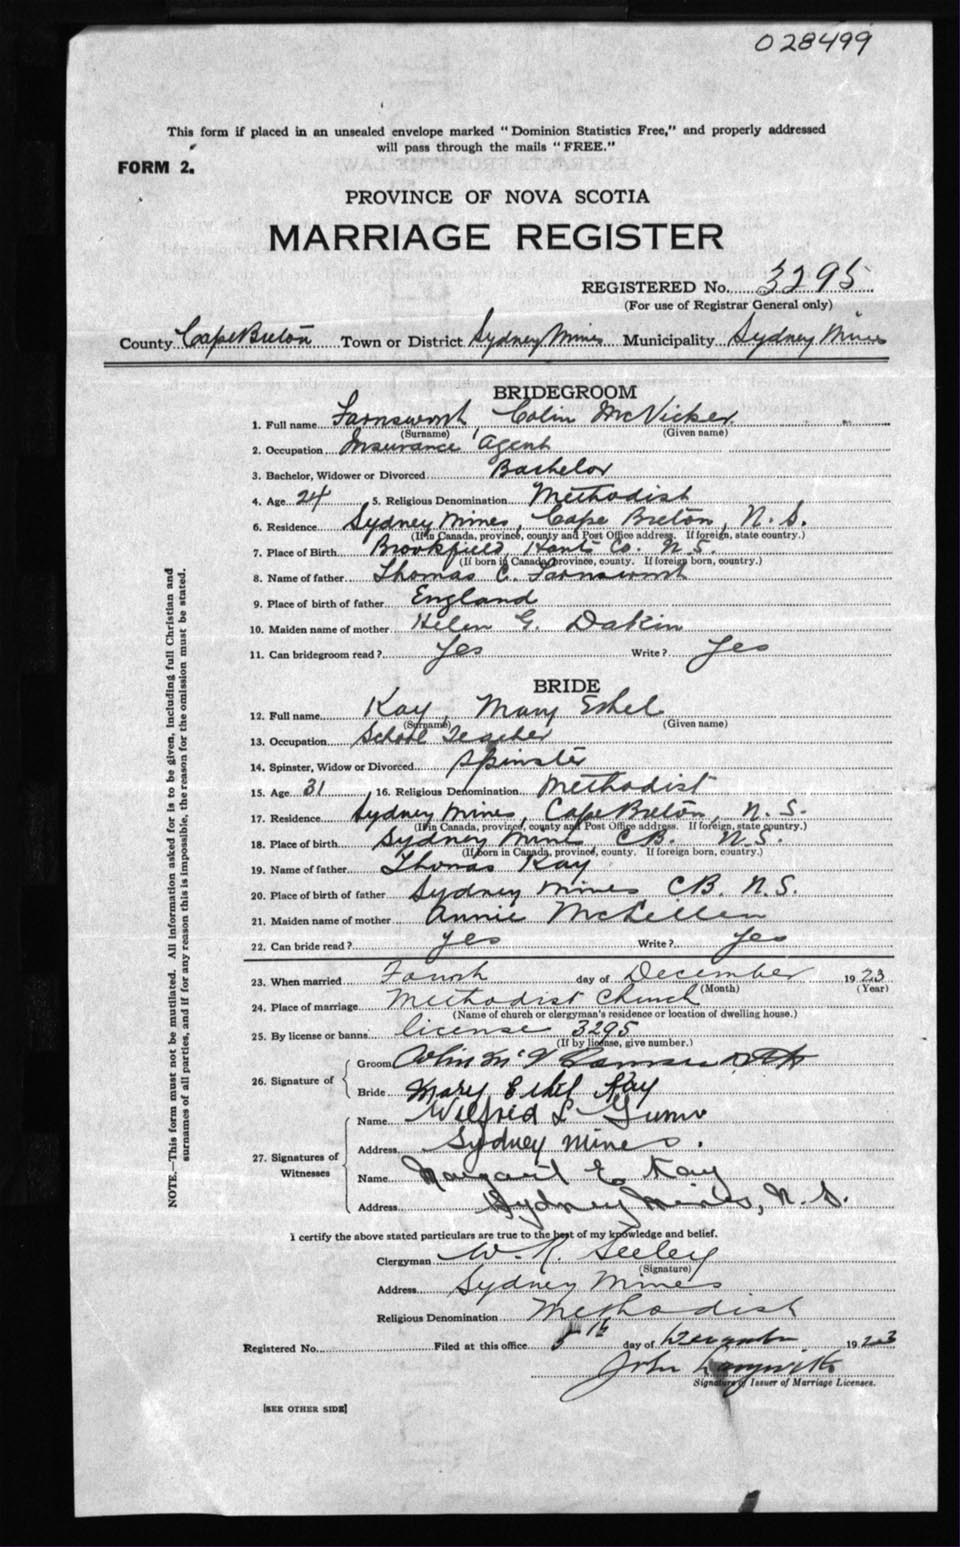 028499
This form if placed in an unsealed envelope marked "Dominion Statistics Free," and properly addressed
will pass through the mails "FREE."
FORM 2.
PROVINCE OF NOVA SCOTIA
MARRIAGE REGISTER
REGISTERED No. 3295
(For use of Registrar General only)
County Cape Breton Town or District Sydney Mines Municipality Sydney Mines
BRIDEGROOM
1. Full name Farnsworth, Colin McVicker
(Surname) (Given name)
2. Occupation Insurance Agent
3. Bachelor, Widower or Divorced Bachelor
4. Age 24, 5. Religious Denomination Methodist
6. Residence Sydney Mines, Cape Breton, N.S.
(If in Canada, province, county and Post Office address. If foreign, state country.)
7. Place of Birth Brookfield, Hants Co. N.S.
(If born in Canada, province, county. If foreign born, country.)
8. Name of father Thomas C. Farnsworth
9. Place of birth of father England
10. Maiden name of mother Helen G. Dakin
11. Can bridegroom read? Yes Write? Yes
BRIDE
12. Full name Kay, Mary Ethel
(Surname) (Given name)
13. Occupation School Teacher
14. Spinster, Widow or Divorced Spinster
15. Age 31, 16. Religious Denomination Methodist
17. Residence Sydney Mines, Cape Breton, N.S.
(If in Canada, province, county and Post Office address. If foreign, state country.)
18. Place of birth Sydney Mines C.B. N.S.
(If born in Canada, province, county. If foreign born, country.)
19. Name of father Thomas Kay
20. Place of birth of father Sydney Mines CB. N.S.
21. Maiden name of mother Annie McLellan
22. Can bride read? yes Write? Yes
23. When married Fourth day of December 1923
(Month) (Year)
24. Place of marriage Methodist Church
(Name of church or clergyman's residence or location of dwelling house.)
25. By license or banns license 3295
(If by license, give number.)
26. Signature of
Groom Colin McV Farnsworth
Bride Mary Ethel Kay
27. Signatures of Witnesses
Name Wilfred L
Address Sydney Mines.
Name Margaret E. Kay
Address Sydney Mines, N.S.
I certify the above stated particulars are true to the best of my knowledge and belief.
Clergyman W. R. Seeley
(Signature)
Address Sydney Mines
Religious Denomination Methodist
Registered No. Filed at this office 5th day of December 1923
John
Signature of Issuer of Marriage Licenses.
[SEE OTHER SIDE]
NOTE.—This form must not be mutilated. All information asked for is to be given, including full Christian and
surnames of all parties, and if for any reason this is impossible, the reason for the omission must be stated.